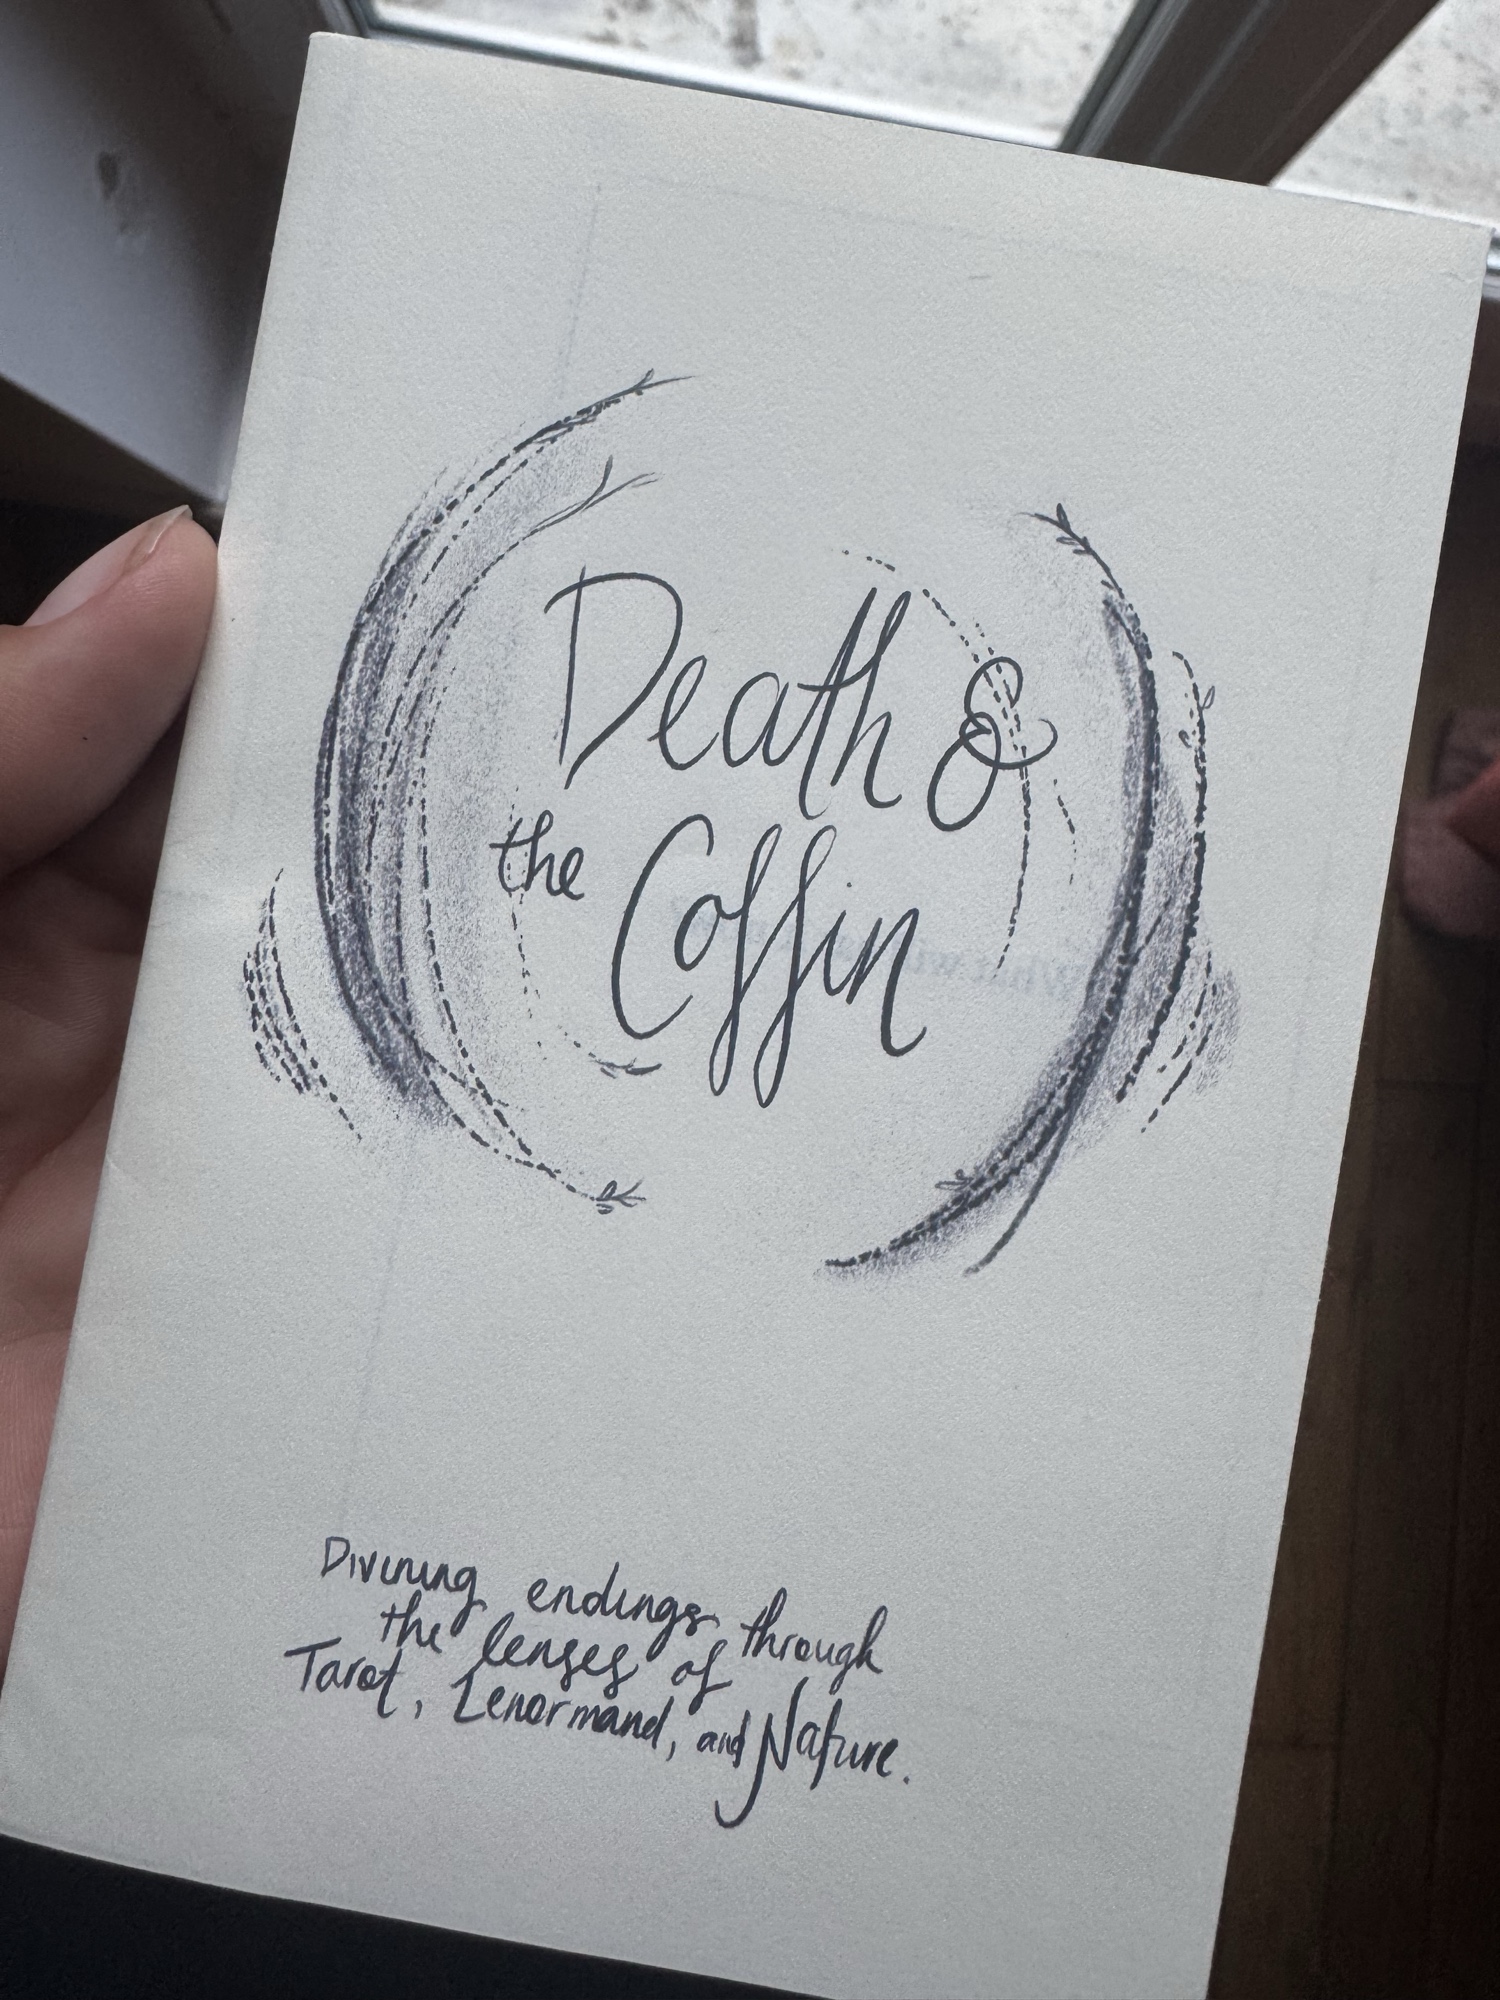 Death &
the Coffin
Divining endings through
the lenses of
Tarot, Lenormand, and Nature.